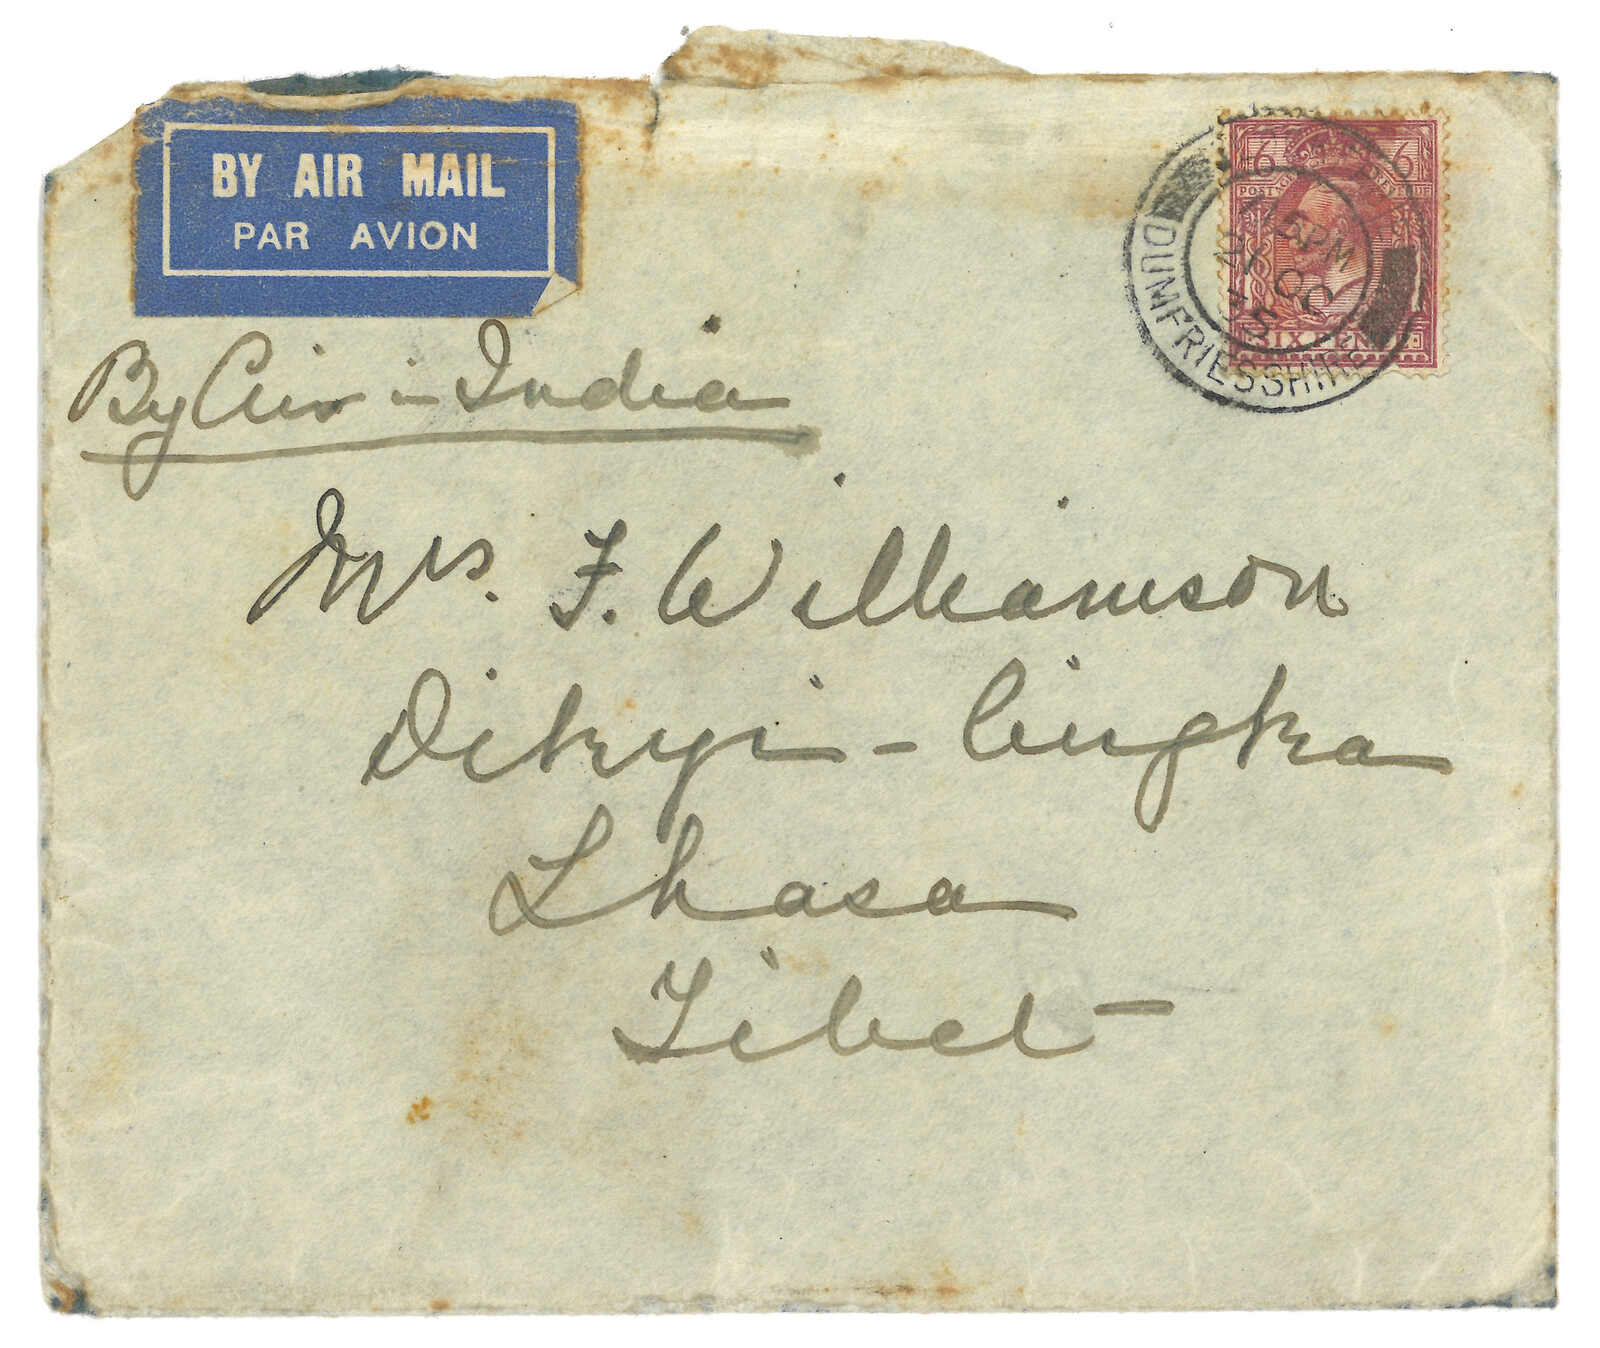 BY AIR MAIL
PAR AVION
6 6
POSTAGE REVENUE
SIX PENCE
DUMFRIESSHIRE
5 PM
21 OC
35
By Air - India
Mrs. F. Williamson
Dikyi - lingka
Lhasa
Tibet